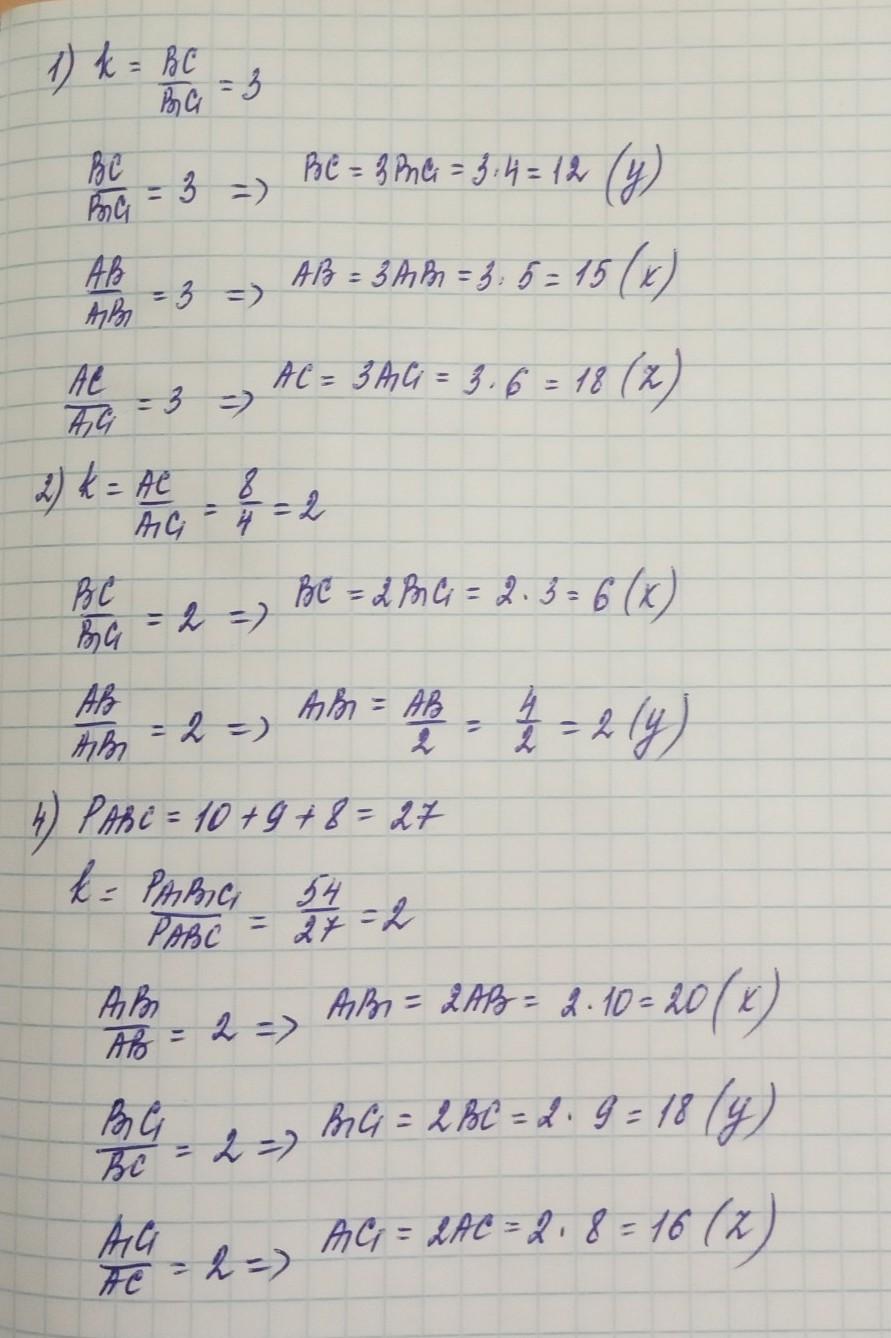 1) k = BC/B₁C₁ = 3
BC/B₁C₁ = 3 => BC = 3B₁C₁ = 3·4 = 12 (y)
AB/A₁B₁ = 3 => AB = 3A₁B₁ = 3·5 = 15 (x)
AC/A₁C₁ = 3 => AC = 3A₁C₁ = 3·6 = 18 (z)
2) k = AC/A₁C₁ = 8/4 = 2
BC/B₁C₁ = 2 => BC = 2B₁C₁ = 2·3 = 6 (x)
AB/A₁B₁ = 2 => A₁B₁ = AB/2 = 4/2 = 2 (y)
4) PABC = 10 + 9 + 8 = 27
k = PA₁B₁C₁/PABC = 54/27 = 2
A₁B₁/AB = 2 => A₁B₁ = 2AB = 2·10 = 20 (x)
B₁C₁/BC = 2 => B₁C₁ = 2BC = 2·9 = 18 (y)
A₁C₁/AC = 2 => A₁C₁ = 2AC = 2·8 = 16 (z)